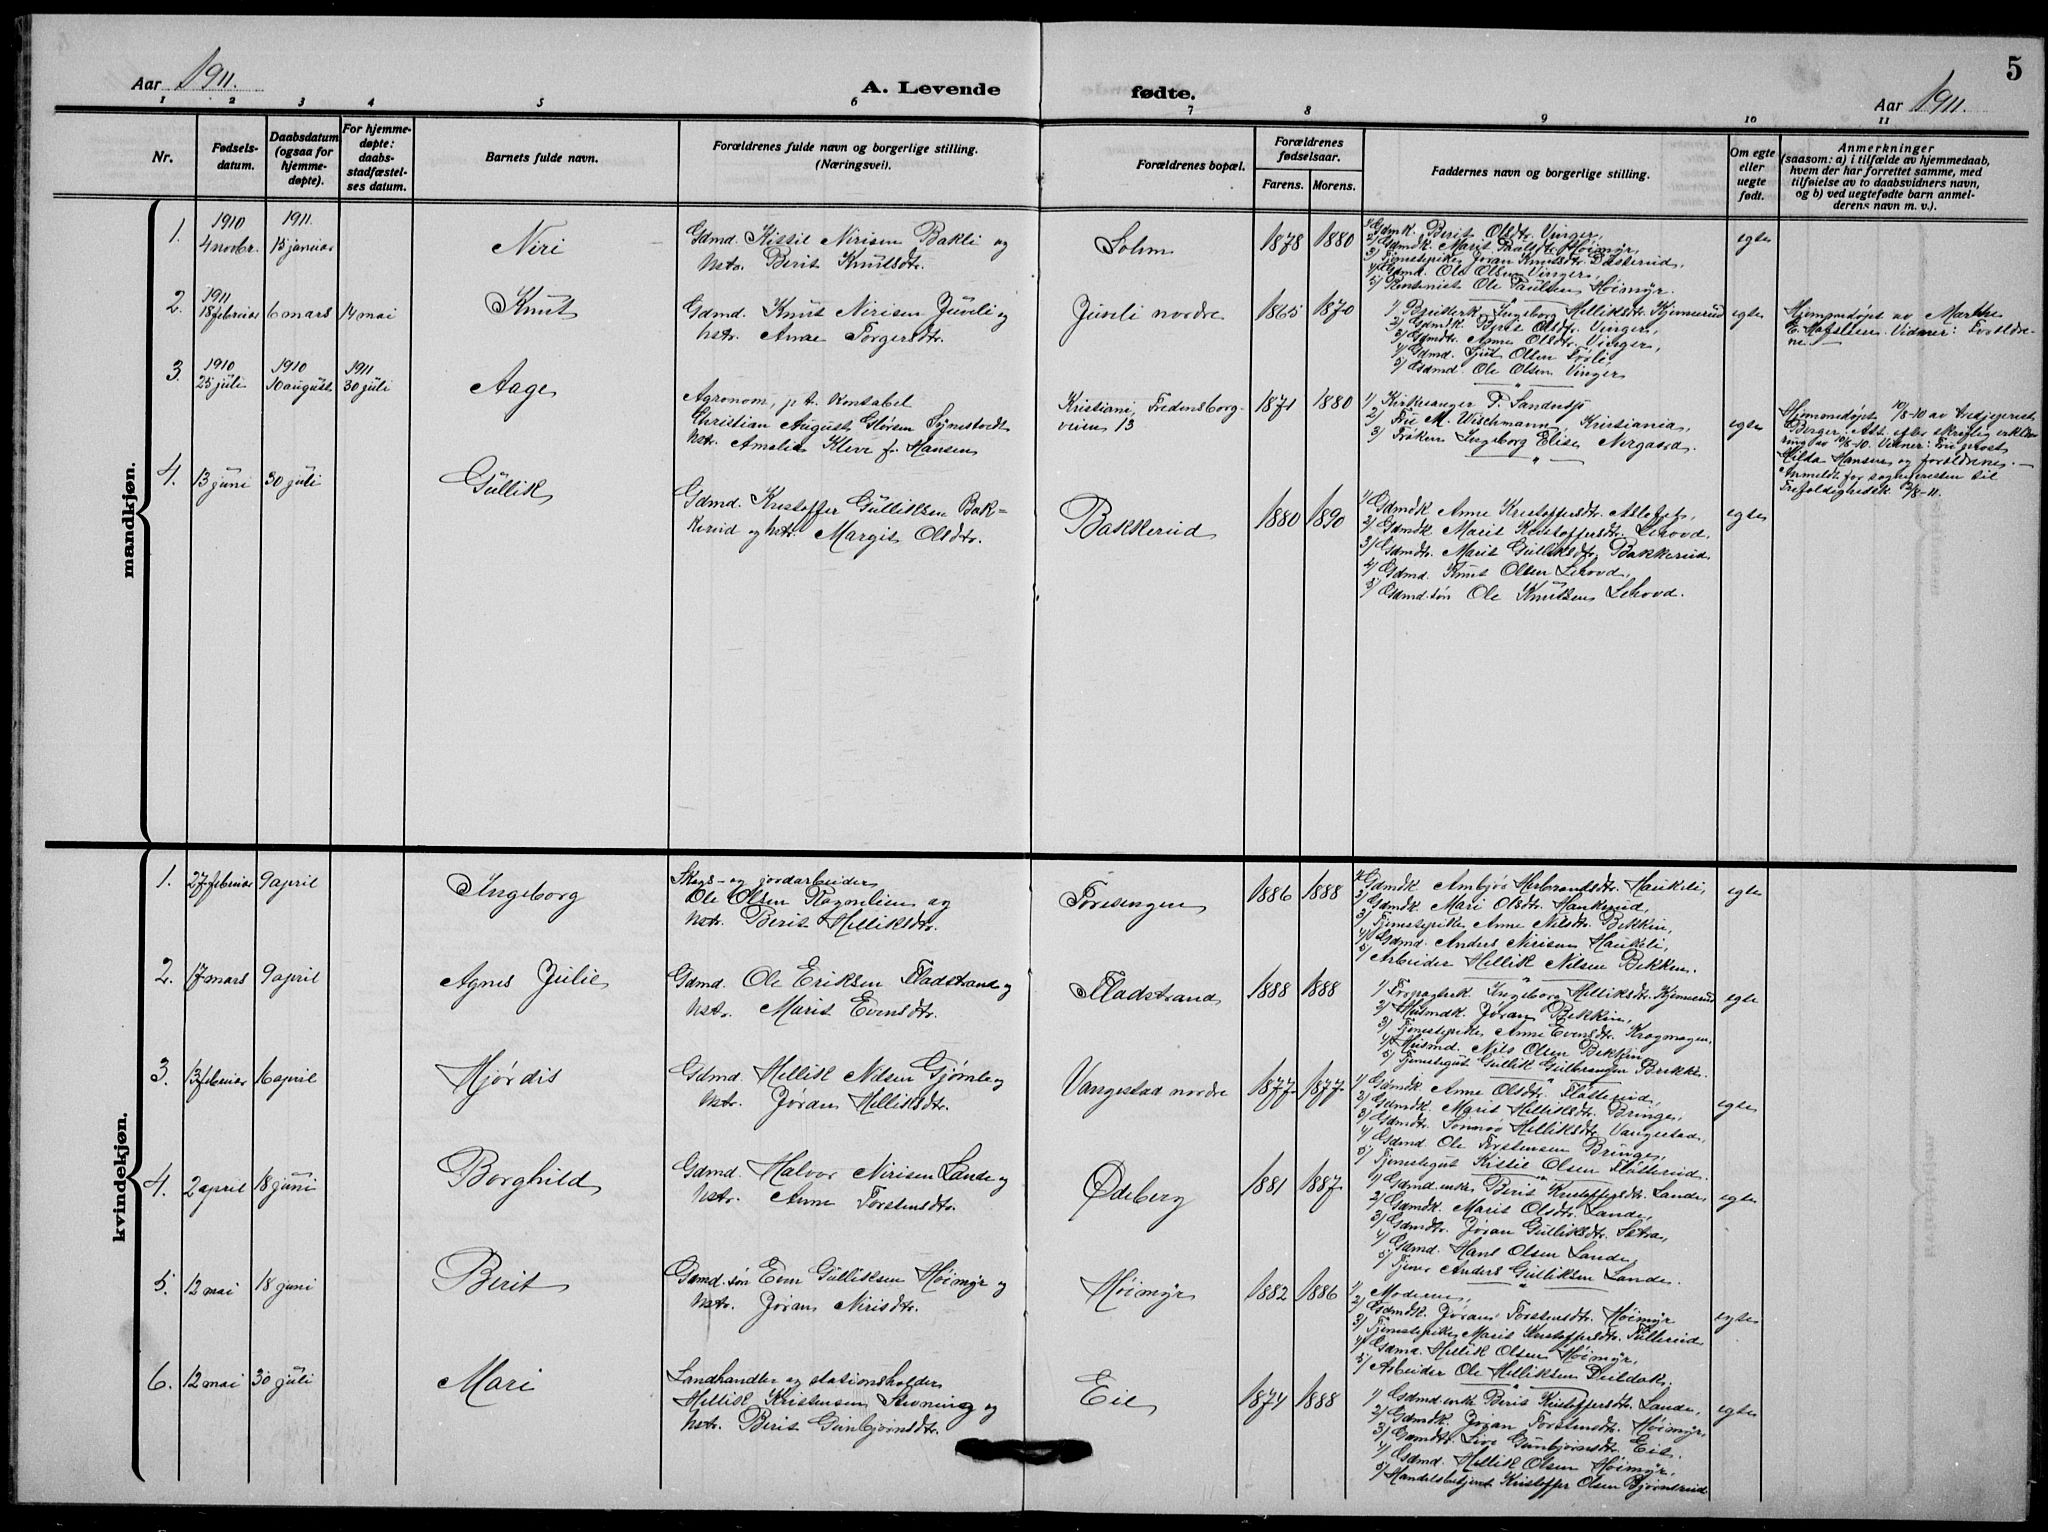 Aar 1911.
A. Levende fødte.
Aar 1911.
5
1 2 3 4 5 6 7 8 9 10 11
Nr.
Fødsels-
datum.
Daabsdatum
(ogsaa for
hjemme-
døpte).
For hjemme-
døpte:
daabs-
stadfæstel-
ses datum.
Barnets fulde navn.
Forældrenes fulde navn og borgerlige stilling.
(Næringsvei).
Forældrenes bopæl.
Forældrenes
fødselsaar.
Farens. Morens.
Faddernes navn og borgerlige stilling.
Om egte
eller
uegte
født.
Anmerkninger
(saasom: a) i tilfælde av hjemmedaab,
hvem der har forrettet samme, med
tilføielse av to daabsvidners navn,
og b) ved uegtefødte barn anmel-
derens navn m. v.).
mandkjøn.
1.
1910
4 novbr.
1911.
15 januar
Niri
Gdmd. Kittil Nirisen Bakli og
hstr. Berit Knutsdtr.
Solem
1878 1880
1/ Gdmk. Berit Olsdtr. Vinger,
2/ Gdmdk. Marit Paalsdtr. Høimyr,
3/ Tjenestepike Jøran Knutsdtr. Bakkerud,
4/ Gdmd. Ole Olsen Vinger,
5/ Ole Paulsen Høimyr.
egte
2.
1911
18 februar 6 mars 14 mai
Knut
Gdmd. Knut Nirisen Juveli og
hstr. Anne Torgersdtr.
Juveli nordre
1865 1870
1/ Ingeborg Helliksdtr. Kjennerud
2/ Gdmdk. Berit Olsdtr. Vinger,
3/ Gdmdtr. Anne Olsdtr. Vinger,
4/ Gdmd. Olsen
5/ Gdmd. Ole Olsen Vinger
egte
Hjemmedøpt av Marthe
E. Vidner: Forældre-
ne.
3.
1910
25 juli
1910
10 august
1911
30 juli
Aage
Agronom, p. t. kontabel
Christian August Synstvedt
hstr. Amalie Kleve f. Hansen
Kristiani, Fredensborg-
veien 13
1871 1880
1/ Kirkesanger P. Sandersjø
2/ Fru M. Wischmann, Kristiania,
3/ Frøken Ingeborg Elise Nergaard.
egte
Hjemmedøpt 10/8-10 av
Berger. Att. efter skriftlig erklæ-
ring av 10/8-10. Vidner:
Hilda Hansen og forældrene.
Anmeldt for sognepresten til
Trefoldighedsk. 2/8-11.
4.
13 juni 30 juli
Gullik
Gdmd. Kristoffer Gulliksen Bak-
kerud og hstr. Margit Olsdtr.
Bakkerud
1880 1890
1/ Gdmdk. Anne Kristoffersdtr.
2/ Gdmdk. Marit Kristoffersdtr. Lehovd,
3/ Gdmdtr. Marit Gulliksdtr. Bakkerud
4/ Gdmd. Knut Olsen Lehovd,
5/ Gdmd.søn Ole Knutsen Lehovd.
egte
kvindekjøn.
1.
27 februar 9 april
Ingeborg
Skogs- og jordarbeider
Ole Olsen og
hstr. Berit Helliksdtr.
Foresengen
1886 1888
1/ Gdmdk. Ambjør Herbrandsdtr. Haukeli,
2/ Gdmdk. Mari Olsdtr. Haukerud,
3/ Tjenestepike Anne Nilsdtr. Bekkin,
4/ Gdmd. Anders Nirisen Haukeli,
5/ Arbeider Hellik Nilsen Bekken.
egte
2.
17 mars 9 april
Agnes Julie
Gdmd. Ole Eriksen Fladstrand og
hstr. Marit Evensdtr.
Fladstrand
1888 1888
1/ Ingeborg Helliksdtr. Kjennerud
2/ Husmdk. Jøran Bekkin,
3/ Tjenestepike Anne Evensdtr.
4/ Husmd. Nils Olsen Bekkin
5/ Tjenestegut Gullik
egte
3.
13 februar 16 april
Hjørdis
Gdmd. Hellik Nilsen Gjømle og
hstr. Jøran Helliksdtr.
Vangestad nordre
1877 1877
1/ Gdmdk. Anne Olsdtr. Fløtterud,
2/ Gdmdk. Marit Helliksdtr. Bringe,
3/ Gdmdtr. Helliksdtr. Vangestad,
4/ Gdmd. Ole Torstensen Bringe,
5/ Tjenestegut Kittil Olsen Fløtterud.
egte
4.
2 april 18 juni
Borghild
Gdmd. Halvor Nirisen Lande og
hstr. Anne Torstensdtr.
Ødeberg
1881 1887
1/ Gdmd.enke Berit Kristoffersdtr. Lande,
2/ Gdmdk. Marit Olsdtr. Lande,
3/ Gdmdtr. Jøran Gulliksdtr. Setra,
4/ Gdmd. Hans Olsen Lande,
5/ Tjener Anders Gulliksen Lande.
egte
5.
12 mai 18 juni
Berit
Gdmd.søn Even Gulliksen Høimyr og
hstr. Jøran Nirisdtr.
Høimyr
1882 1886
1/ Moderen,
2/ Gdmdk. Jøran Torstensdtr. Høimyr
3/ Tjenestepike Marit Kristoffersdtr.
4/ Gdmd. Hellik Olsen Høimyr,
5/ Arbeider Ole Helliksen
egte
6.
12 mai 30 juli
Mari
Landhandler og stationsholder
Hellik Kristensen Stvning og
hstr. Berit Gunbjørnsdtr.
Eie
1874 1888
1/ Gdmd.enk. Berit Kristoffersdtr. Lande,
2/ Gdmdk. Jøran Torstensdtr. Høimyr,
3/ Gdmdtr. Live Gunbjørnsdtr. Eie
4/ Gdmd. Hellik Olsen Høimyr,
5/ Handelsbetjent Kristoffer Olsen Bjørnerud
egte